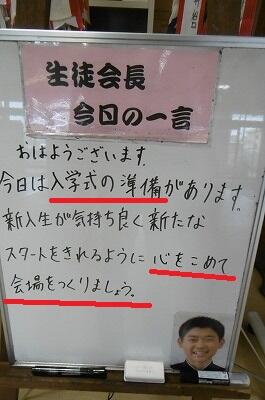 生徒会長
今日の一言
おはようございます。
今日は入学式の準備があります。
新入生が気持ち良く新たな
スタートをきれるように心をこめて
会場をつくりましょう。